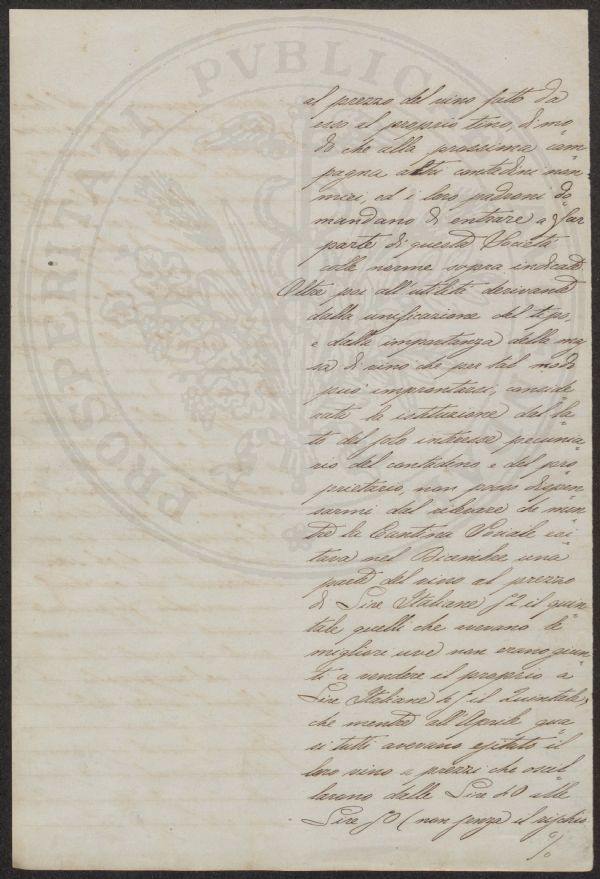 PROSPERITATI PUBLICAE
al prezzo del vino fatto da
esso al proprio tino, di mo-
do che alla prossima cam-
pagna altri contadini non
miei, ed i loro padroni do-
mandano di entrare a far
parte di questa Società
colle norme sopra indicate.
Oltre poi all'utilità derivante
dalla unificazione del tipo,
e dalla importanza della mas-
sa di vino che per tal modo
può improntarsi, conside-
rata la istituzione dal la-
to del solo interesse pecunia-
rio del contadino, e del pro-
prietario, non posso dispen-
sarmi dal rilevare che men-
tre la Cantina Sociale esi-
tava nel Dicembre una
parte del vino al prezzo
di Lire Italiane 52 il quin-
tale, quelli che avevano le
migliori uve non erano giun-
ti a vendere il proprio a
Lire Italiane 45 il Quintale;
che mentre all'Aprile qua-
si tutti avevano esitato il
loro vino a prezzi che oscil-
larono dalle Lire 40 alle
Lire 50 (non senza il rischio
%